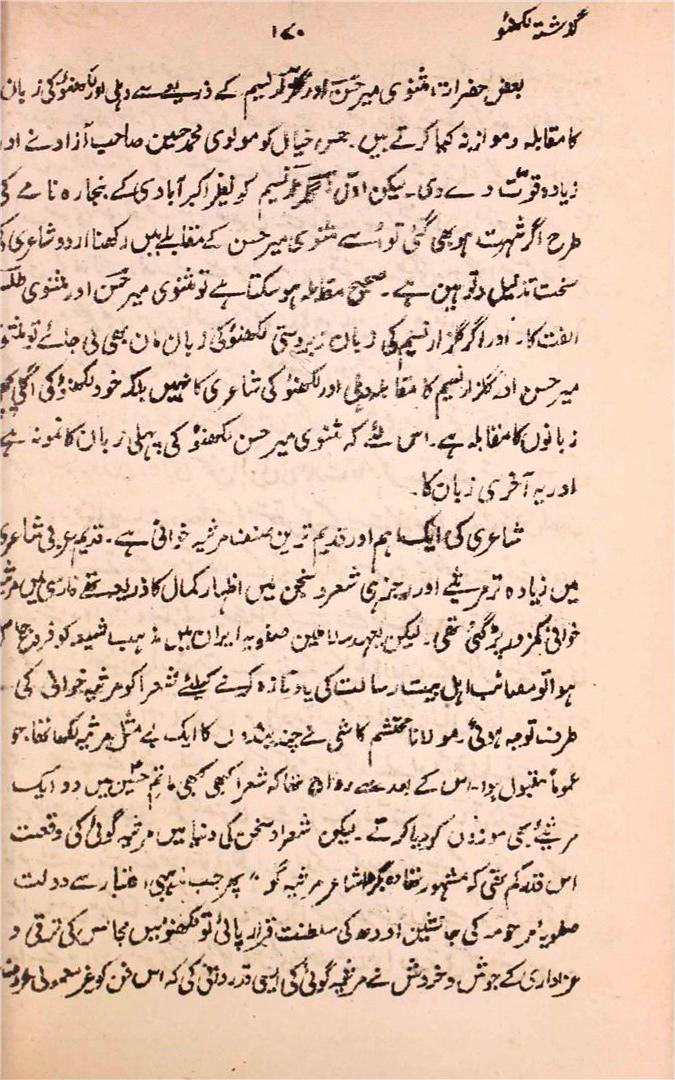 گذشتہ لکھنؤ
۱۸۰
بعض حضرات مثنوی میر حسن اور گلزار نسیم کے ذریعے سے دہلی اور لکھنؤ کی زبان
کا مقابلہ و موازنہ کیا کرتے ہیں۔ جس خیال کو مولوی محمد حسین صاحب آزاد نے اور
زیادہ قوت دے دی۔ لیکن اول تو گلزار نسیم کو نظیر اکبر آبادی کے بنجارہ نامے کی
طرح اگر شہرت ہو بھی گئی تو اُسے مثنوی میر حسن کے مقابلے میں رکھنا اردو شاعری کی
سخت تذلیل و توہین ہے۔ صحیح مقابلہ ہو سکتا ہے تو مثنوی میر حسن اور مثنوی طلسم
الفت کا۔ اور اگر گلزار نسیم کی زبان زبردستی لکھنؤ کی زبان مان بھی لی جائے تو مثنوی
میر حسن اور گلزار نسیم کا مقابلہ دہلی اور لکھنؤ کی شاعری کا نہیں بلکہ خود لکھنؤ کی اگلی
زبانوں کا مقابلہ ہے۔ اس لئے کہ مثنوی میر حسن لکھنؤ کی پہلی زبان کا نمونہ ہے
اور یہ آخری زبان کا۔
شاعری کی ایک اہم اور قدیم ترین صنف مرثیہ خوانی ہے۔ قدیم عربی شاعری
میں زیادہ تر مرثیے اور رجز ہی شعر و سخن میں اظہار کمال کا ذریعہ تھے فارسی میں مرثیہ
خوانی کمزور پڑ گئی تھی۔ لیکن بعہد سلاطین صفویہ ایران میں مذہب شیعہ کو فروغ حاصل
ہوا تو مصائب اہل بیت رسالت کی یاد تازہ کرنے کیلئے شعرا کو مرثیہ خوانی کی
طرف توجہ ہوئی۔ مولانا محتشم کاشی نے چند بندوں کا ایک بے مثل مرثیہ لکھا تھا۔ جو
عموماً مقبول ہوا۔ اس کے بعد سے رواج تھا کہ شعرا کبھی کبھی ماتم حسینؑ میں دو ایک
مرثیے بھی موزوں کر دیا کرتے۔ لیکن شعر و سخن کی دنیا میں مرثیہ گوئی کی وقعت
اس قدر کم تھی کہ مشہور تھا "بگڑا شاعر مرثیہ گو" پھر جب مذہبی اعتبار سے دولت
صفویہ مرحومہ کی جانشین اودھ کی سلطنت قرار پائی تو لکھنؤ میں مجالس کی ترقی و
عزاداری کے جوش و خروش نے مرثیہ گوئی کی ایسی قدر دانی کی کہ اس فن کو غیر معمولی عروج